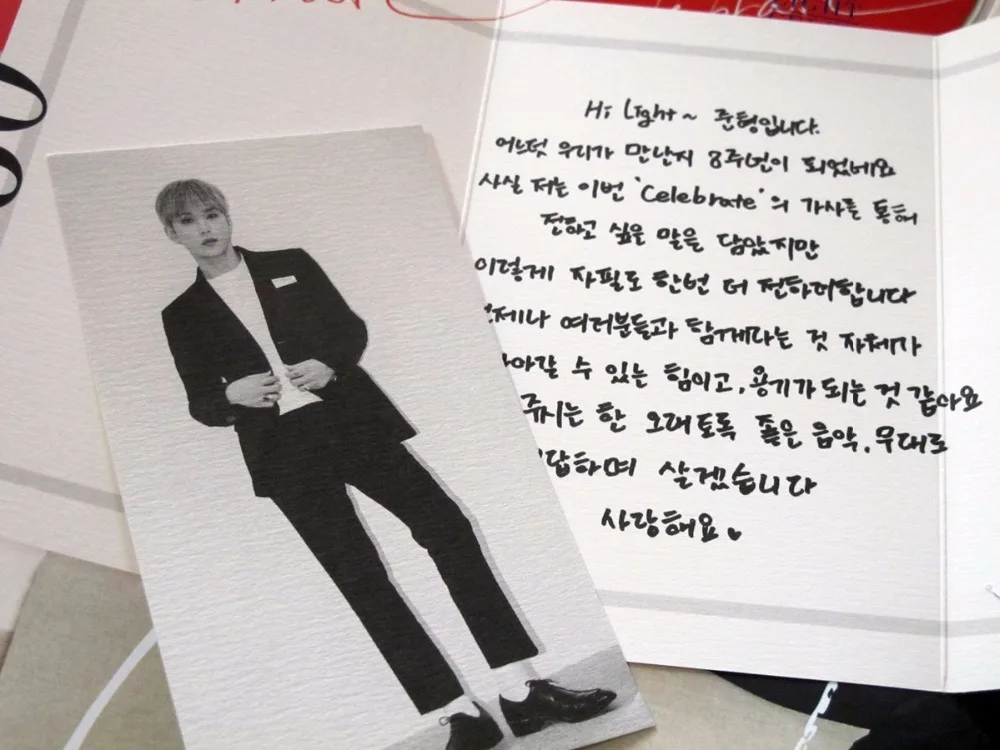 Hi Light~ 준형입니다.
어느덧 우리가 만난지 8주년이 되었네요
사실 저는 이번 'Celebrate'의 가사를 통해
전하고 싶은 말을 담았지만
이렇게 자필로 한번 더 전하려합니다
여러분들과 함께라는 것 자체가
수 있는 힘이고, 용기가 되는 것 같아요
주시는 한 오래토록 좋은 음악, 무대로
살겠습니다
사랑해요♥